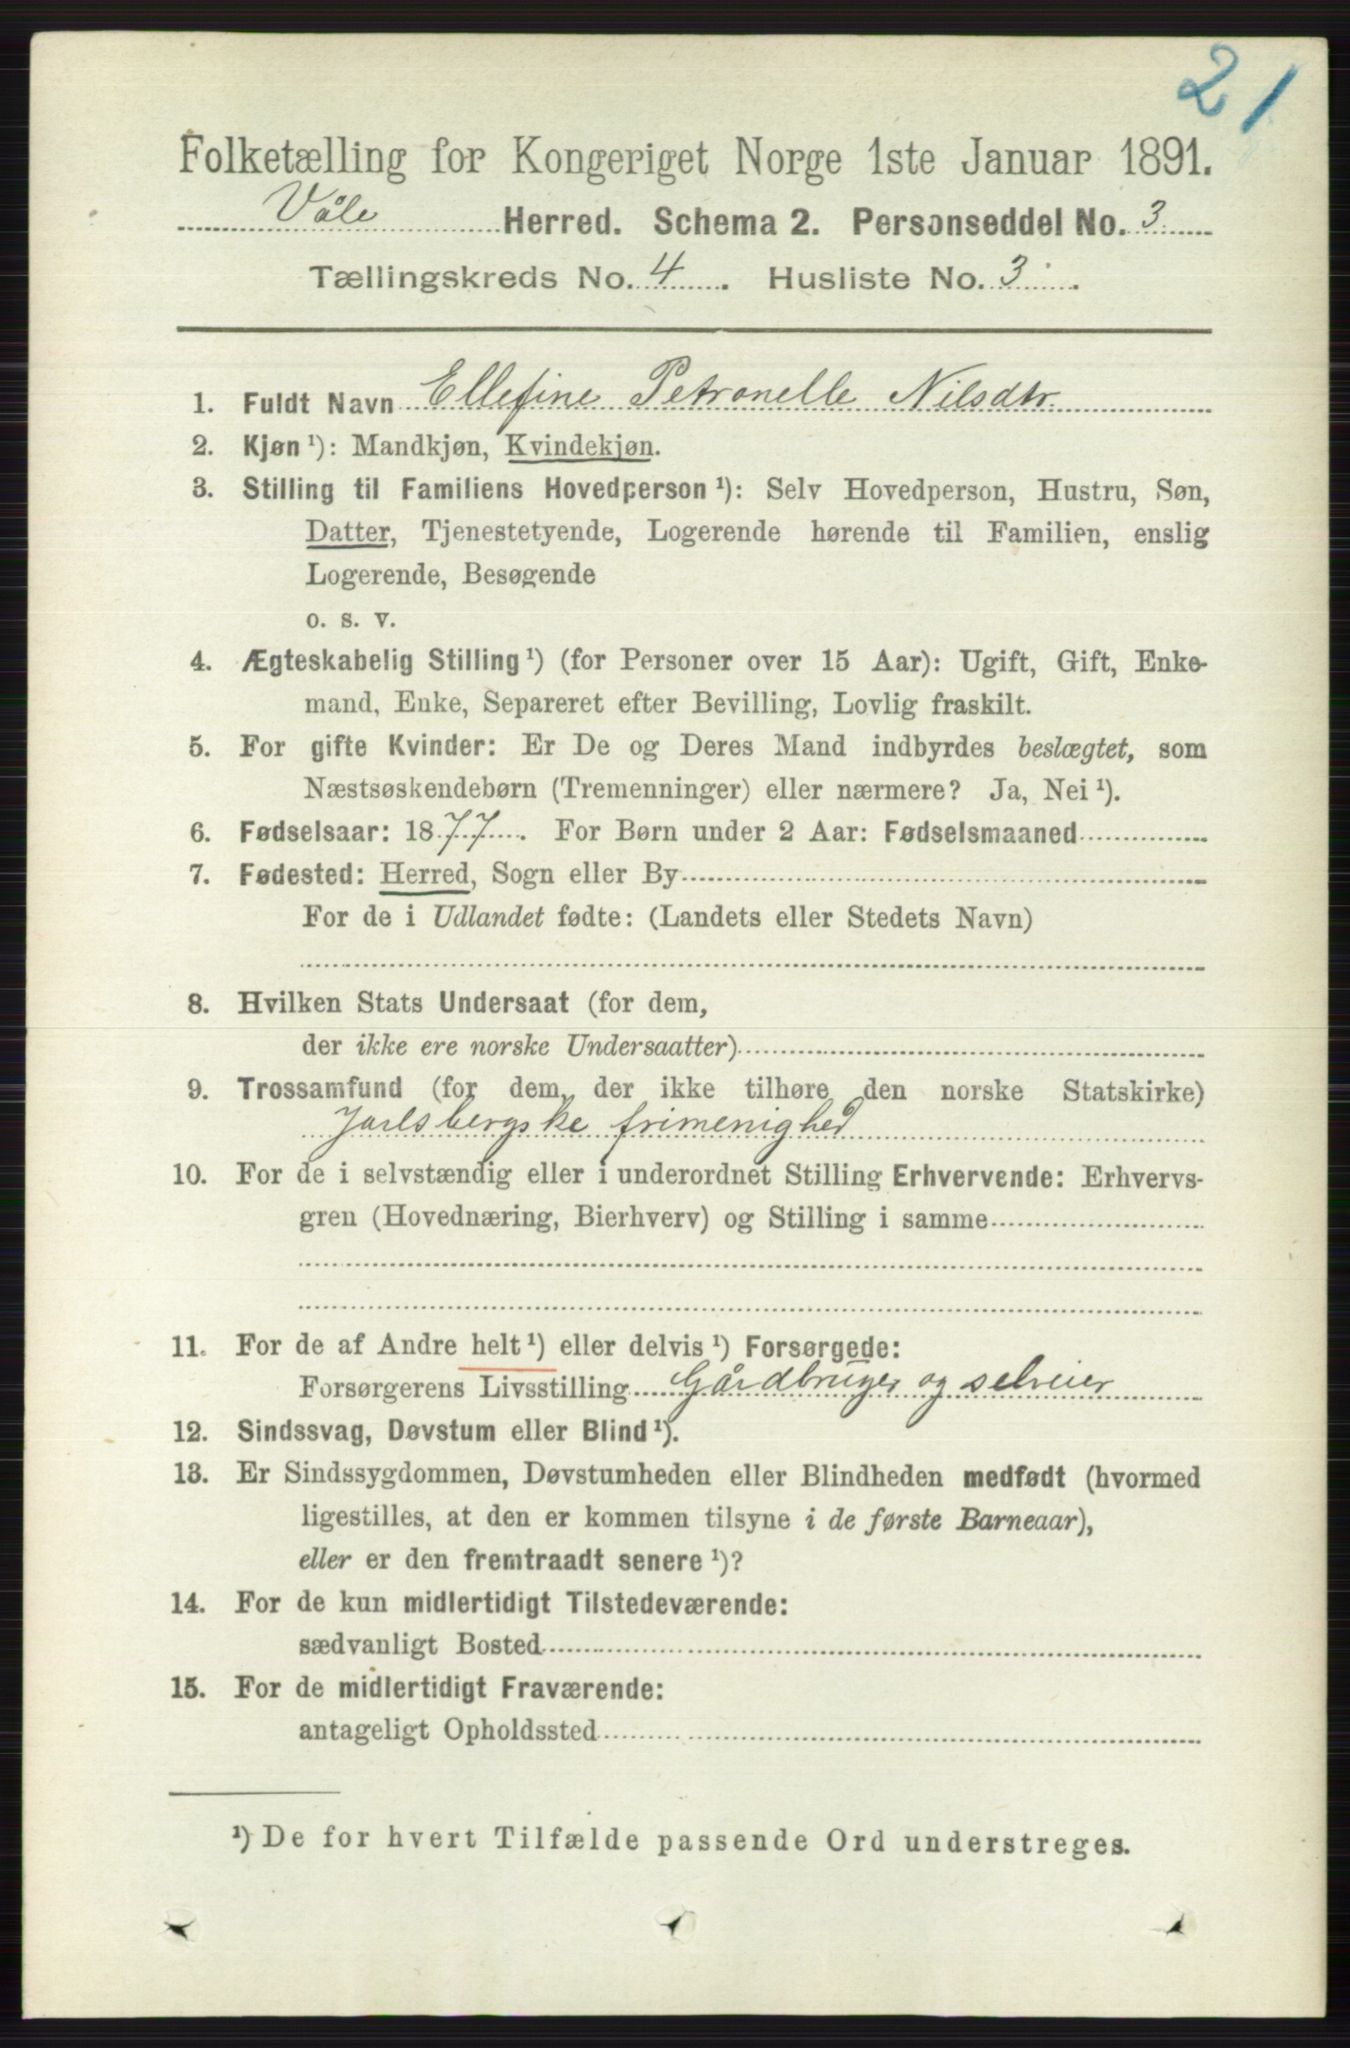 21
Folketælling for Kongeriget Norge 1ste Januar 1891.
Våle Herred. Schema 2. Personseddel No. 3
Tællingskreds No. 4. Husliste No. 3.
1. Fuldt Navn Ellefine Petronelle Nilsdtr.
2. Kjøn ¹): Mandkjøn, Kvindekjøn.
3. Stilling til Familiens Hovedperson ¹): Selv Hovedperson, Hustru, Søn,
Datter, Tjenestetyende, Logerende hørende til Familien, enslig
Logerende, Besøgende
o. s. v.
4. Ægteskabelig Stilling ¹) (for Personer over 15 Aar): Ugift, Gift, Enke-
mand, Enke, Separeret efter Bevilling, Lovlig fraskilt.
5. For gifte Kvinder: Er De og Deres Mand indbyrdes beslægtet, som
Næstsøskendebørn (Tremenninger) eller nærmere? Ja, Nei ¹).
6. Fødselsaar: 1877. For Børn under 2 Aar: Fødselsmaaned
7. Fødested: Herred, Sogn eller By
For de i Udlandet fødte: (Landets eller Stedets Navn)
8. Hvilken Stats Undersaat (for dem,
der ikke ere norske Undersaatter)
9. Trossamfund (for dem, der ikke tilhøre den norske Statskirke)
Jarlsbergske frimenighed
10. For de i selvstændig eller i underordnet Stilling Erhvervende: Erhvervs-
gren (Hovednæring, Bierhverv) og Stilling i samme
11. For de af Andre helt ¹) eller delvis ¹) Forsørgede:
Forsørgerens Livsstilling Gårdbruger og selveier
12. Sindssvag, Døvstum eller Blind ¹).
13. Er Sindssygdommen, Døvstumheden eller Blindheden medfødt (hvormed
ligestilles, at den er kommen tilsyne i de første Barneaar),
eller er den fremtraadt senere ¹)?
14. For de kun midlertidigt Tilstedeværende:
sædvanligt Bosted
15. For de midlertidigt Fraværende:
antageligt Opholdssted
¹) De for hvert Tilfælde passende Ord understreges.